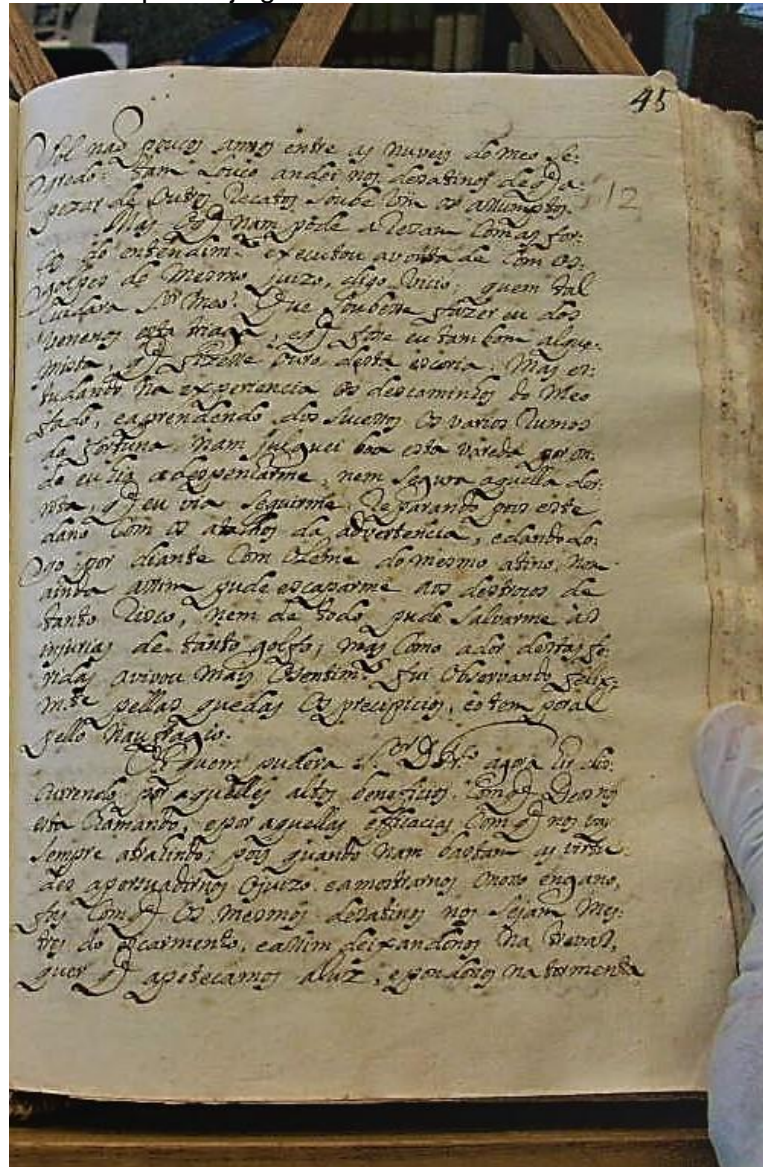 45
Sol nao poucos annos entre as nuveis do meo se:
gredo: tam Louco andei nos dezatinos de q̃ a
pezar de outros Recatos soube Um os assumptos. 12
Mas o q̃ nam pode a Rezam Com as for:
ças do entendim.to executou a vontade Com os
golpes do mesmo juizo, digo Vicio; quem tal
Cuidara S.or meo! Que soubesse fazer eu dos
Venenos esta triaga, e q̃ fosse eu tam bom alque:
mista, q̃ fizesse ouro desta escoria. Mas es:
tudando na experiencia os descaminhos do meo
fado, e aprendendo dos sucessos os varios Rumos
da fortuna. Nam julguei boa esta vareda por on:
de eu hia a despenharme, nem segura aquella der:
rota, q̃ eu via seguirme. Reparando pois este
dano Com os atalhos da advertencia, e dando lo:
go por diante Com o Leme do mesmo atino, Nam
ainda assim pude escaparme aos destroços de
tanto Risco, nem de todo pude salvarme às
injurias de tanto golfo; mas Como a dor destas fe:
ridas avivou mais o sentim.to fui observando felix:
m.te pellas quedas os precipicios, e o tom
pello naufragio.
Quem pudera S.or D. agora hir dis:
currendo por aquelles altos beneficios. Com q̃ Deos nos
esta chamando, e por aquellas efficacias Com q̃ nos vai
sempre atrahindo; pois quando nam bastam as virtu:
des a persuadirnos o juizo e a mostrarnos o noso engano,
faz Com q̃ os mesmos dezatinos nos sejam Mes:
tres do escarmento, e assim deixandonos na trevas,
quer q̃ apeteçamos a luz, e pondonos na tormenta